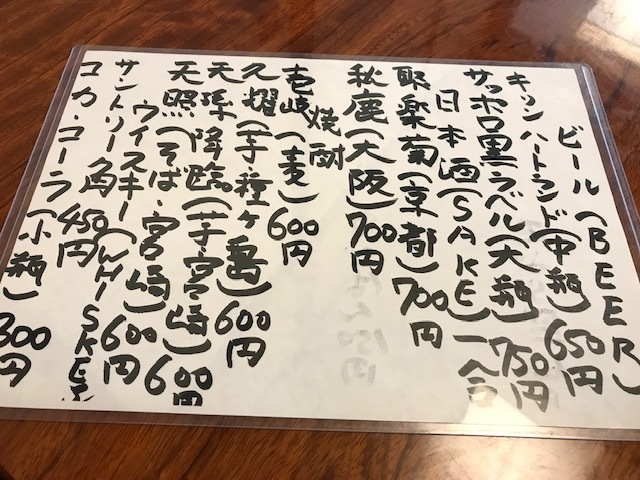 ビール(BEER)
キリンハートランド(中瓶)650円
サッポロ黒ラベル(大瓶)750円
日本酒(SAKE)一合
聚楽菊(京都)700円
秋鹿(大阪)700円
焼酎
壱岐(麦)600円
久耀(芋・種ヶ島)600円
天孫降臨(芋・宮崎)600円
天照(そば・宮崎)600円
ウイスキー(WHISKEY
サントリー角450円
コカ・コーラ(小瓶)300円